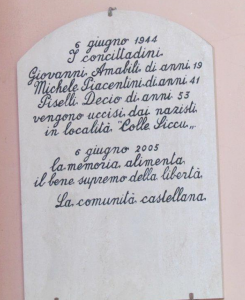 6 giugno 1944
I concittadini
Giovanni Amabili di anni 19
Michele Piacentini di anni 41
Piselli Decio di anni 53
vengono uccisi dai nazisti
in località "Colle Siccu„
6 giugno 2005
la memoria alimenta
il bene supremo della libertà.
La comunità castellana